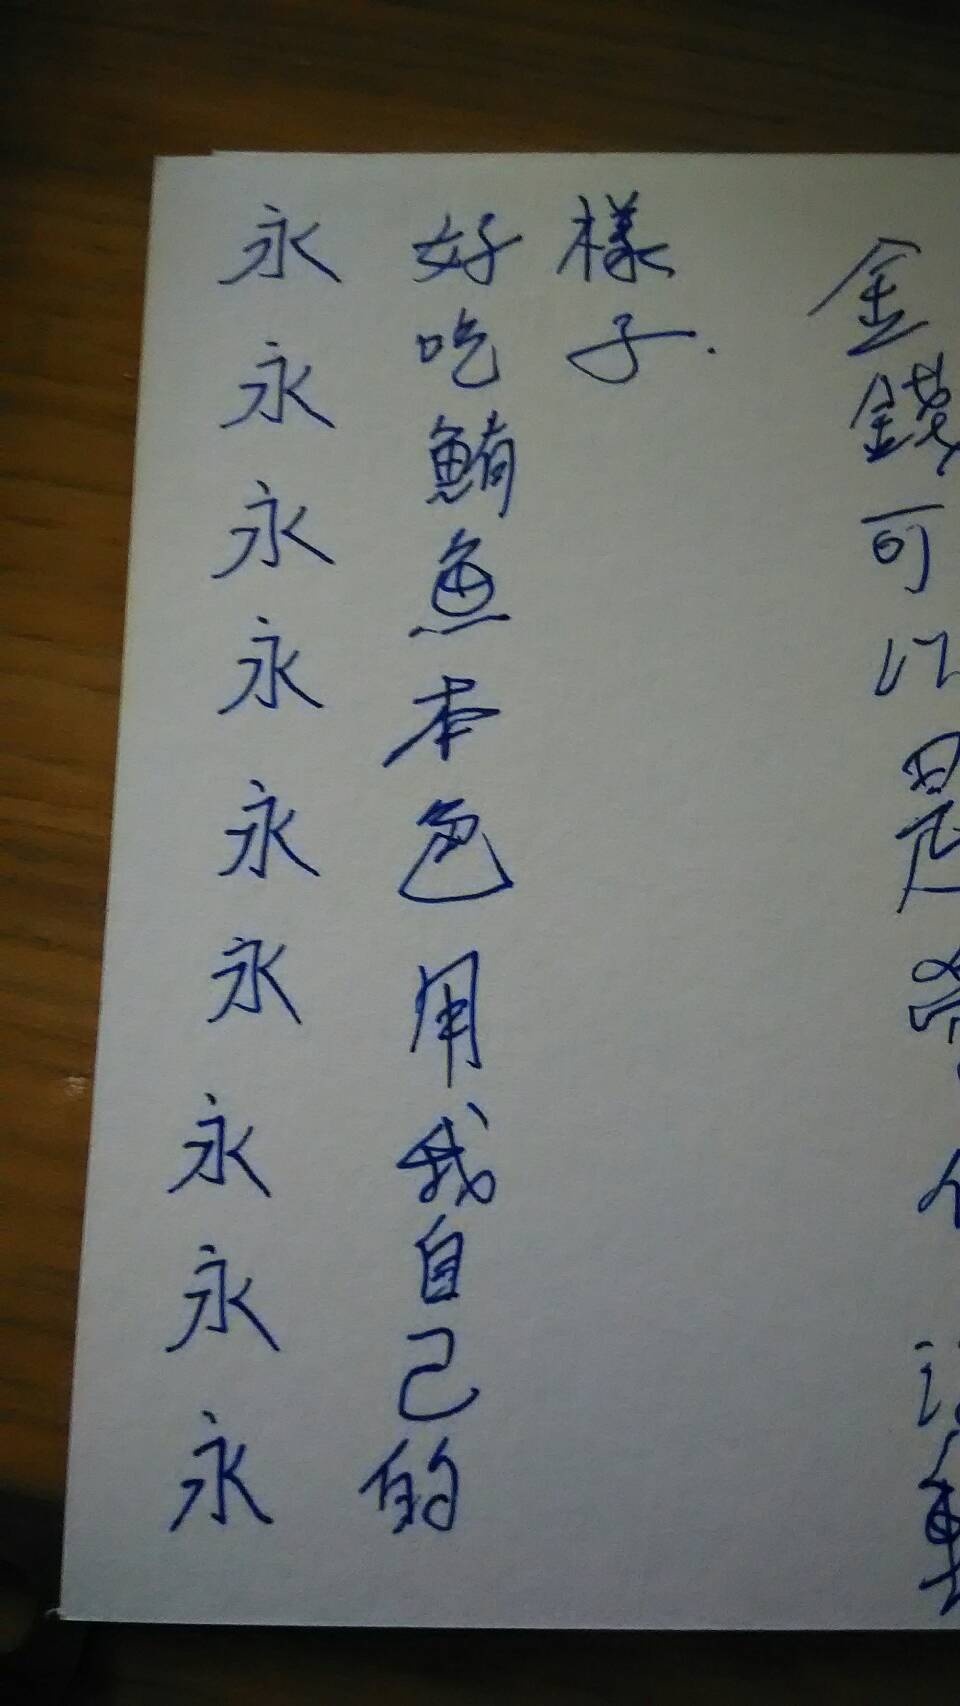 永永永永永永永永永
好吃鮪魚本色用我自己的
樣子.
金錢可以是